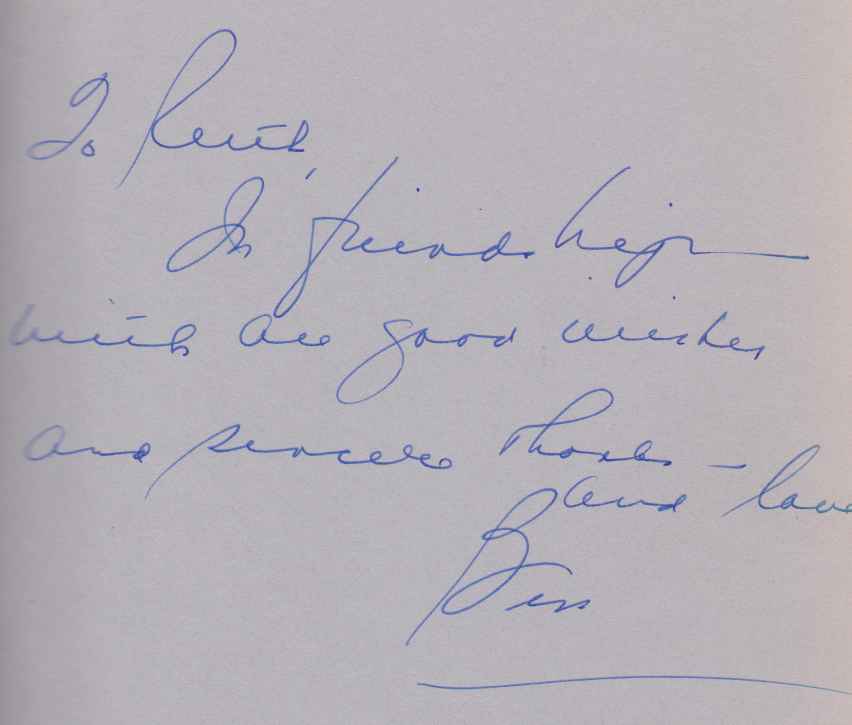 To Ruth,
In friendship
with all good wishes
and sincere thanks –
and love